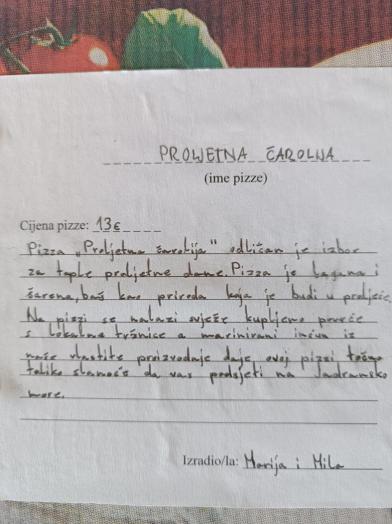 PROLJETNA ČAROLIJA
(ime pizze)
Cijena pizze: 13€
Pizza „Proljetna čarolija" odličan je izbor
za tople proljetne dane. Pizza je lagana i
šarena, baš kao priroda koja je budi u proljeće.
Na pizzi se nalazi svježe kupljeno povrće
s lokalne tržnice a marinirani inćun iz
naše vlastite proizvodnje daje ovoj pizzi točno
toliko slanoće da vas podsjeti na Jadransko
more.
Izradio/la: Marija i Mila